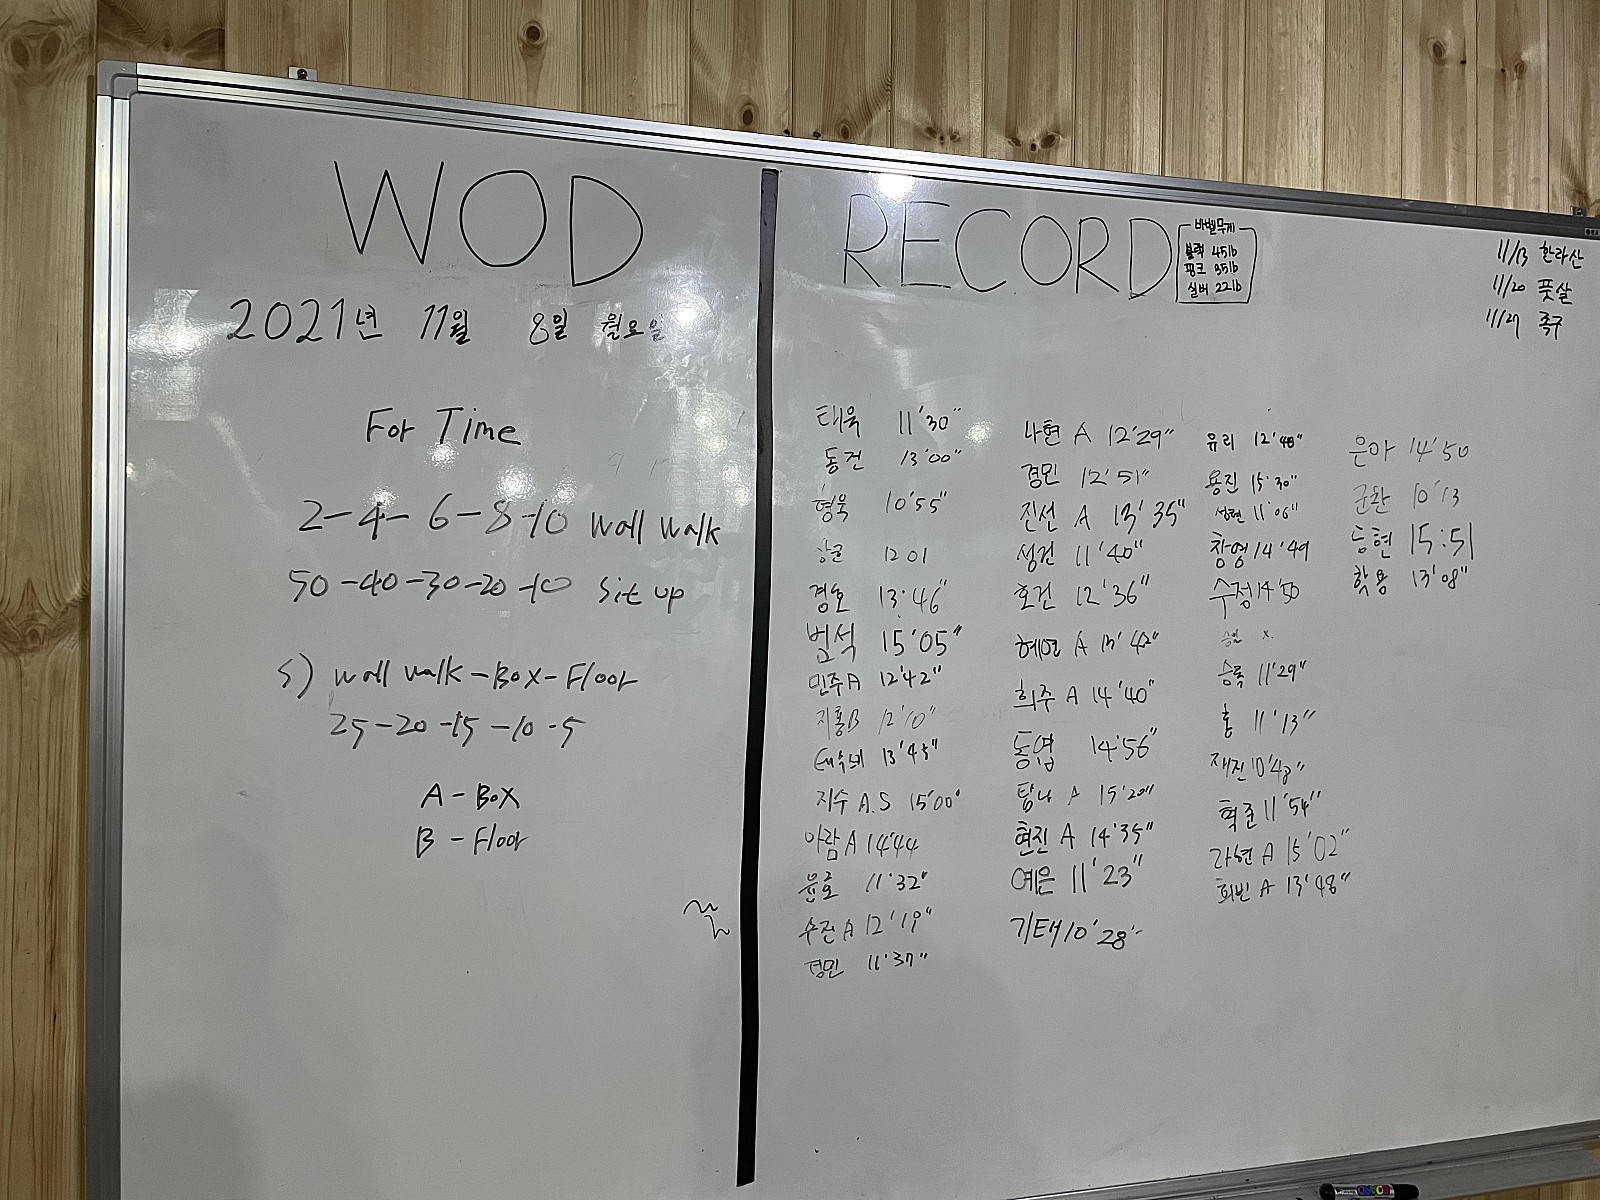 WOD
2021년 11월 8일 월요일
For Time
2-4-6-8-10 wall walk
50-40-30-20-10 sit up
S) wall walk-Box-Floor
25-20-15-10-5
A-Box
B-Floor
RECORD
바벨무게
블랙 45lb
핑크 35lb
실버 22lb
11/13 한라산
11/20 풋살
11/27 족구
태욱 11'30"
동건 13'00"
형욱 10'55"
12 01
경호 13:46"
범석 15'05"
민주A 12'42"
지홍B 12'10"
13'45"
지수 A.S 15'00"
아람 A 14'44
윤호 11'32"
수진 A 12'19"
정민 11'37"
나현 A 12'29"
경민 12'51"
진선 A 13'35"
성건 11'40"
호건 12'36"
혜연 A 13'42"
희주 A 14'40"
동엽 14'56"
탐나 A 15'20"
현진 A 14'35"
예음 11'23"
기태 10'28"
유리 12'48"
용진 15'30"
성현 11'06"
창영 14'49
수정 14'50
승일 x.
승록 11'29"
홍 11'13"
재진 10'48"
혁준 11'54"
라현 A 15'02"
희빈 A 13'48"
은아 14'50
군환 10'13
동현 15:51
학용 13'08"